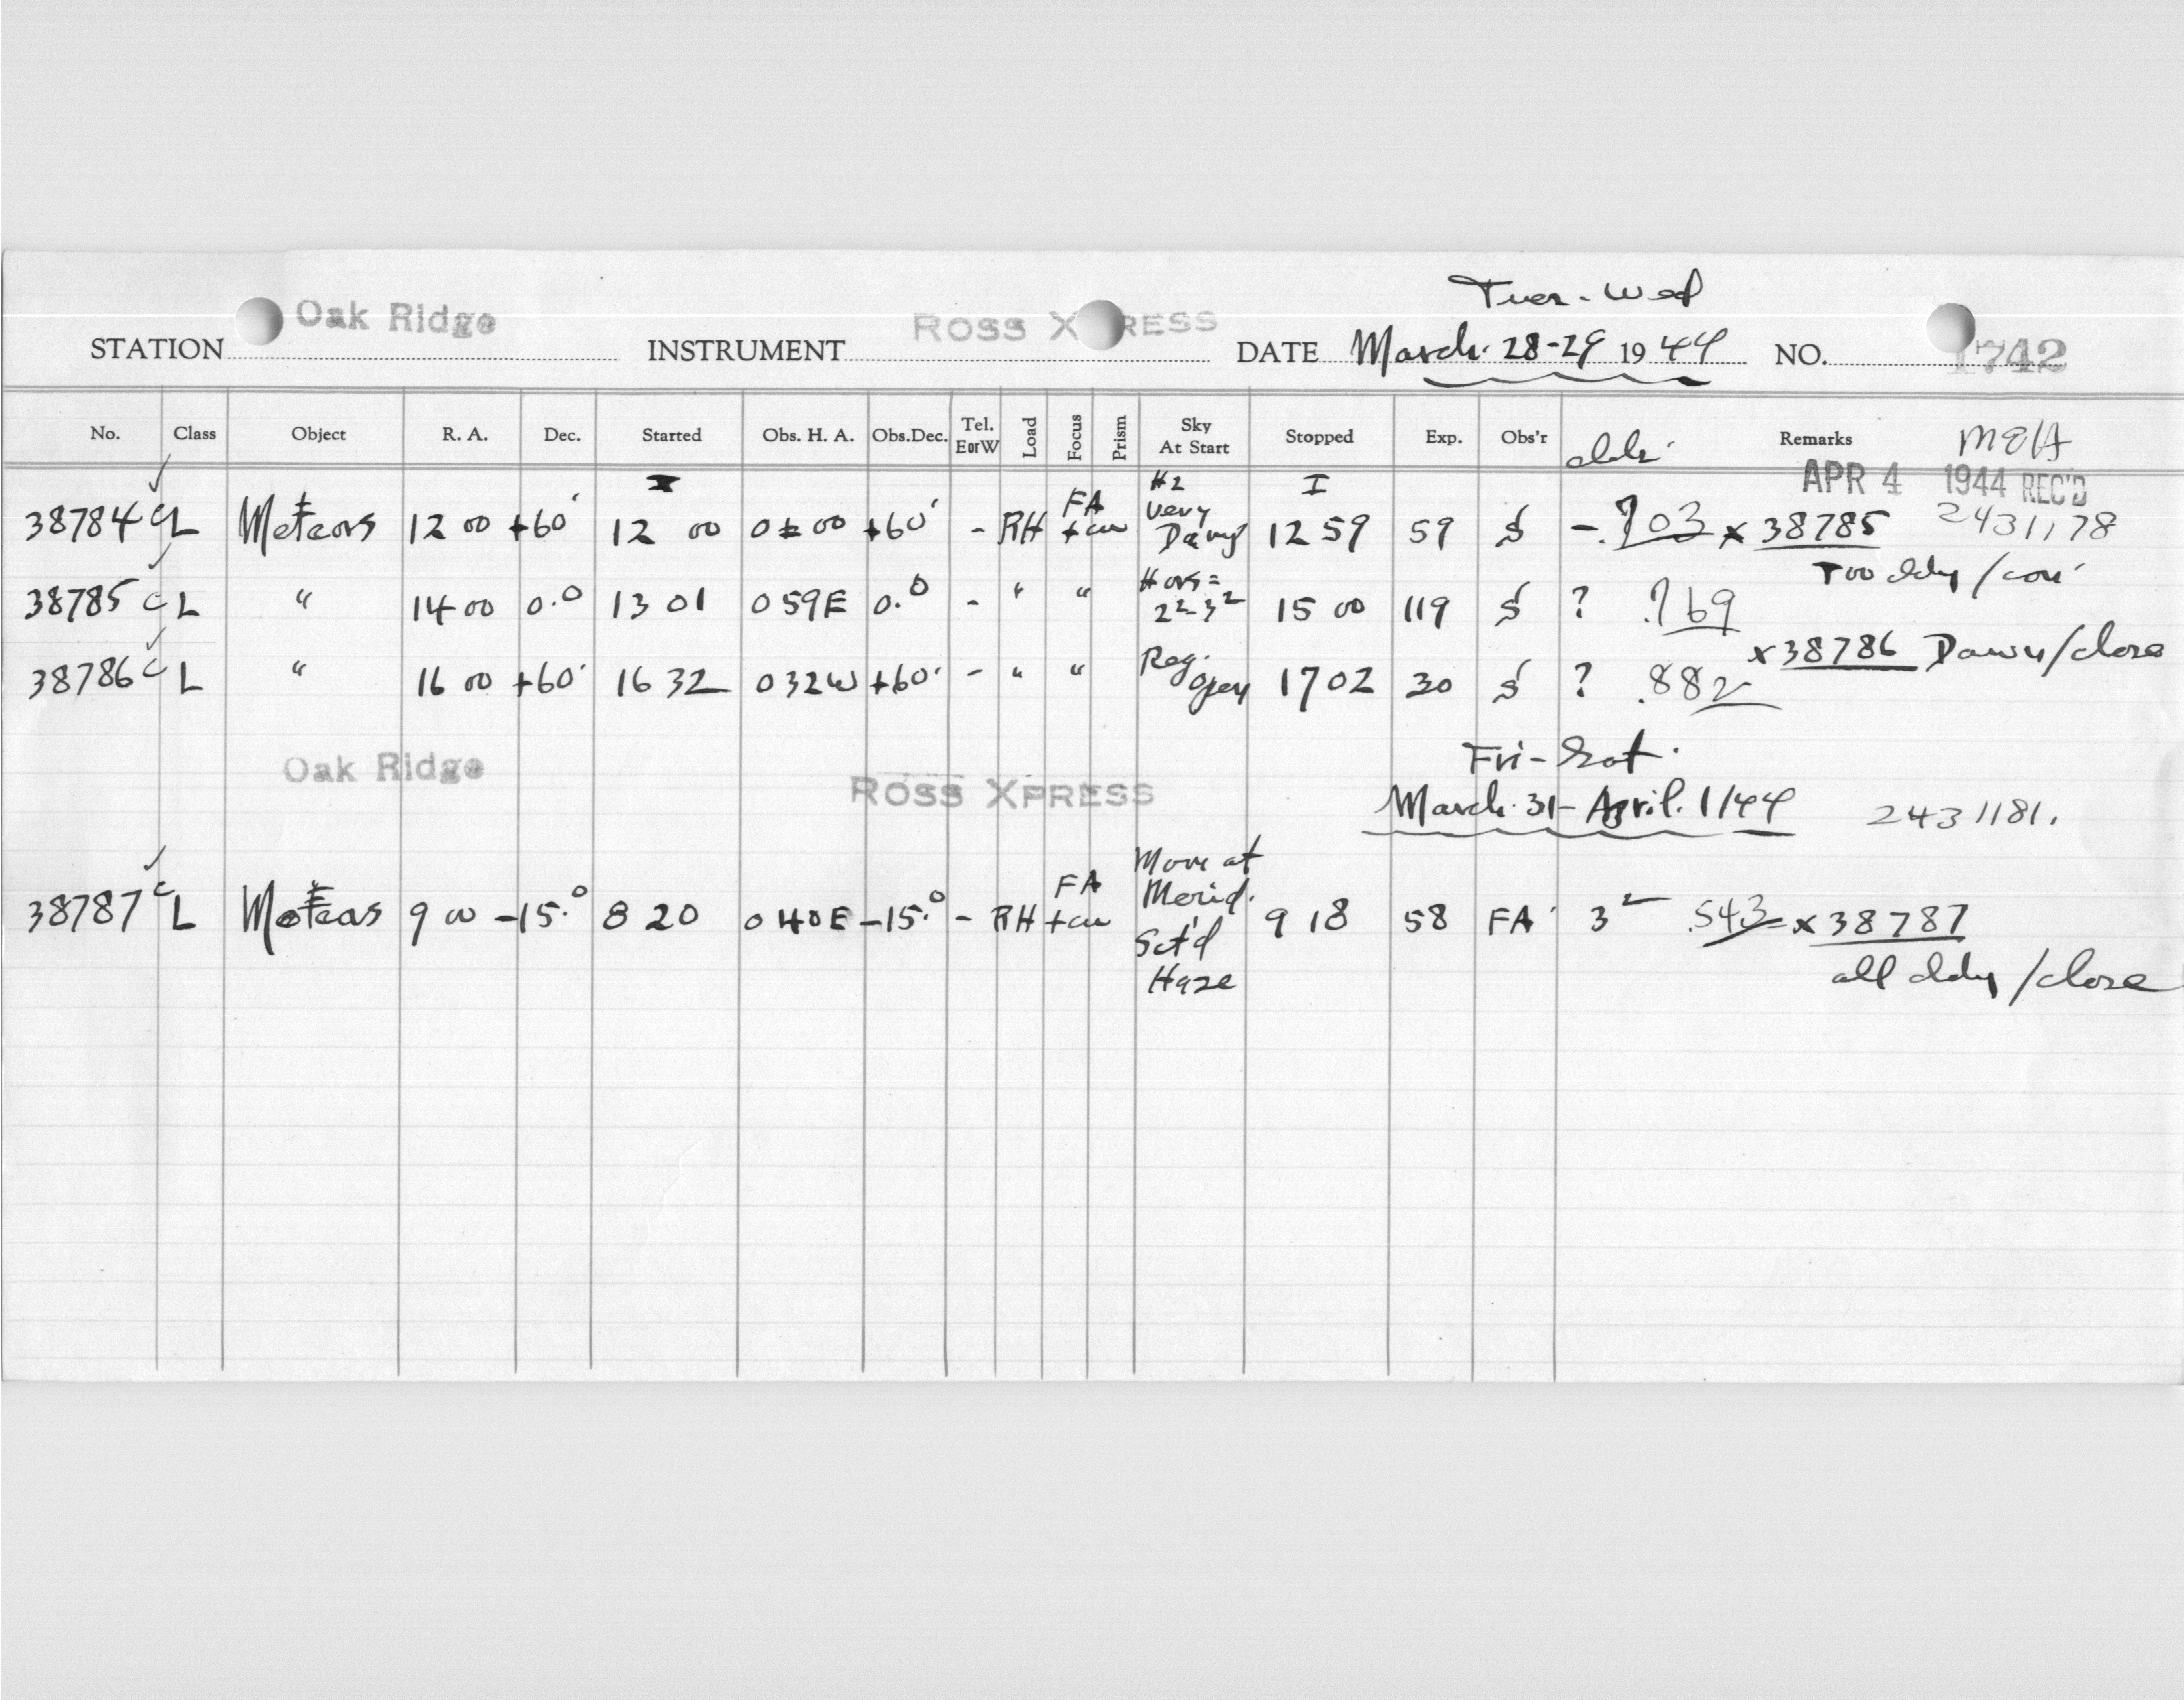 Tues-Wed
STATION Oak Ridge INSTRUMENT ROSS XPRESS DATE March 28-29 1944 NO. 1742
No. Class Object R. A. Dec. Started Obs. H. A. Obs.Dec. Tel. EorW Load Focus Prism Sky At Start Stopped Exp. Obs'r Remarks
APR 4 1944 REC'D
38784 c L Meteors 12 00 +60° 12 00 0 ± 00 +60° - RH FA #2 very 12 59 59 S - .703 x 38785 2431178
Too cldy /
38785 c L " 14 00 0.0 13 01 0 59E 0.0 - " " 15 00 119 S ? .769
x 38786 Dawn/close
38786 c L " 16 00 +60° 16 32 0 32W +60° - " " 17 02 30 S ? .882
Fri-Sat.
Oak Ridge ROSS XPRESS March 31 - April 1/44 2431181.
38787 c L Meteors 9 00 -15.° 8 20 0 40E -15.° - RH FA Move at Merid. Sct'd Haze 9 18 58 FA 3² .543 x 38787
all cldy /close